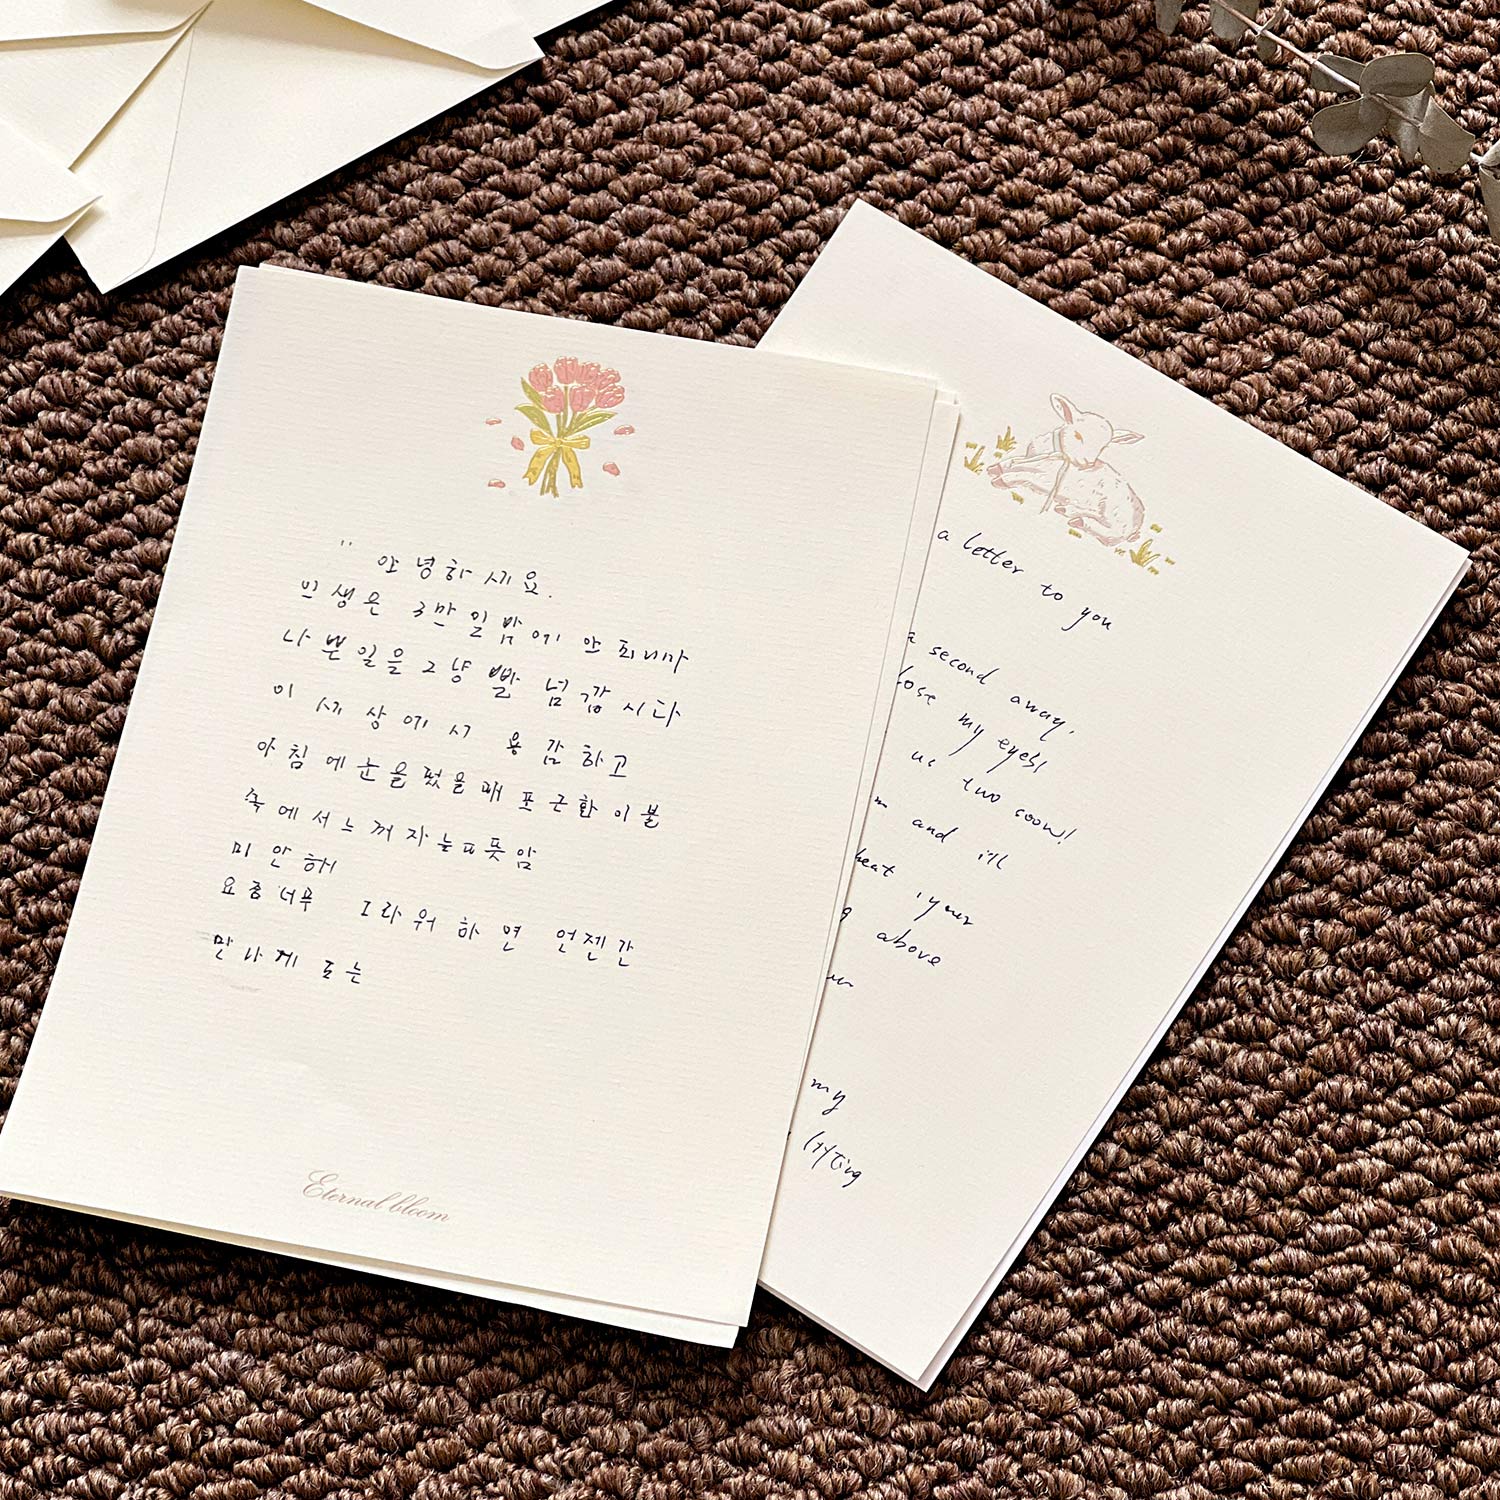 " 안녕하세요.
인생은 3만 일밖에 안 되니까
나쁜일을 그냥 빨 넘깁시다
이 세상에서 용감하고
아침에눈을떴을때 포근한이불
속에서느껴지는따뜻암
미안해
요즘너무 그리워하면 언젠간
만나게 또는
Eternal bloom
a letter to you
a second away,
my eyes!
us two soon!
and i'll
heat your
above
my